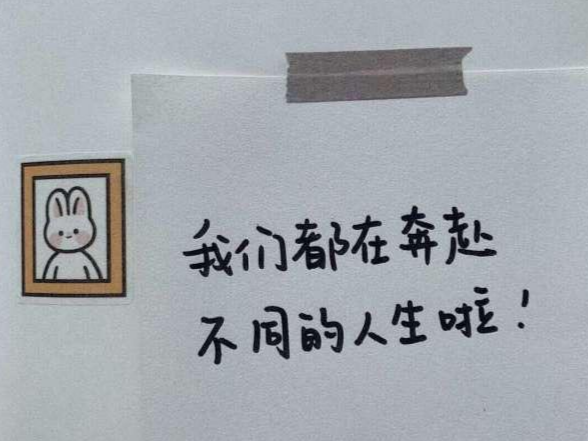 我们都在奔赴
不同的人生啦！